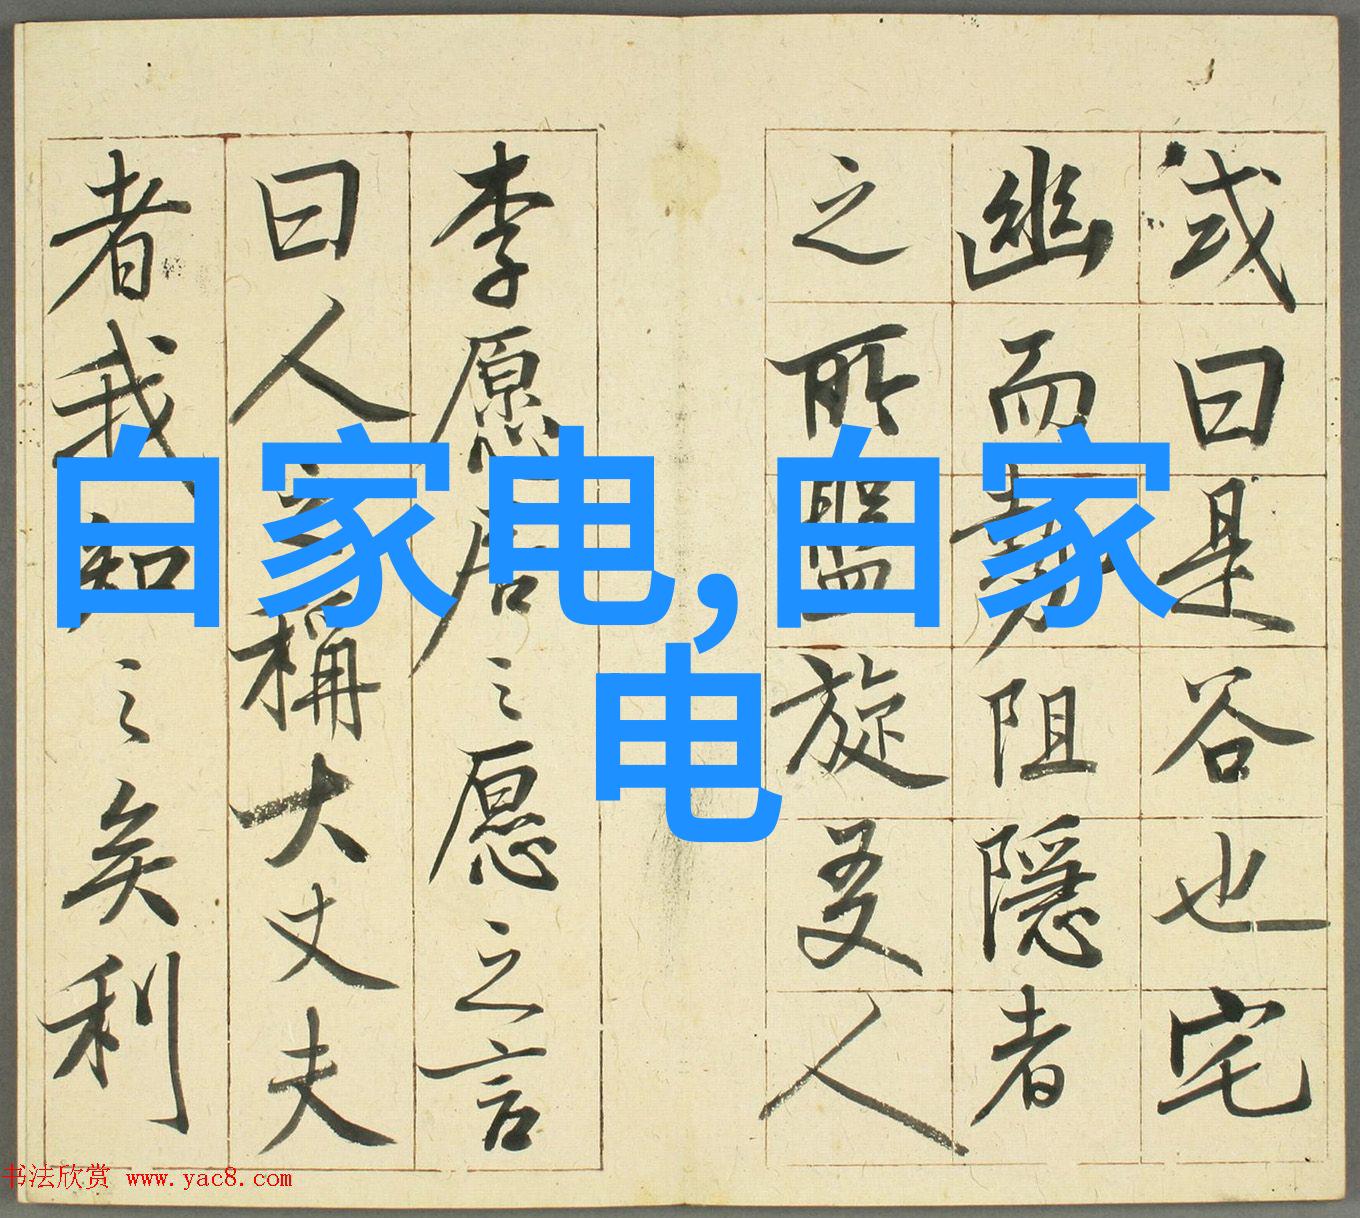 或曰是谷也宅
幽而勢阻隱者
之所盤旋友人
李愿居之愿之言
曰人之稱大丈夫
者我知之矣利
白家电,白家
电
书法欣赏 www.yac8.com